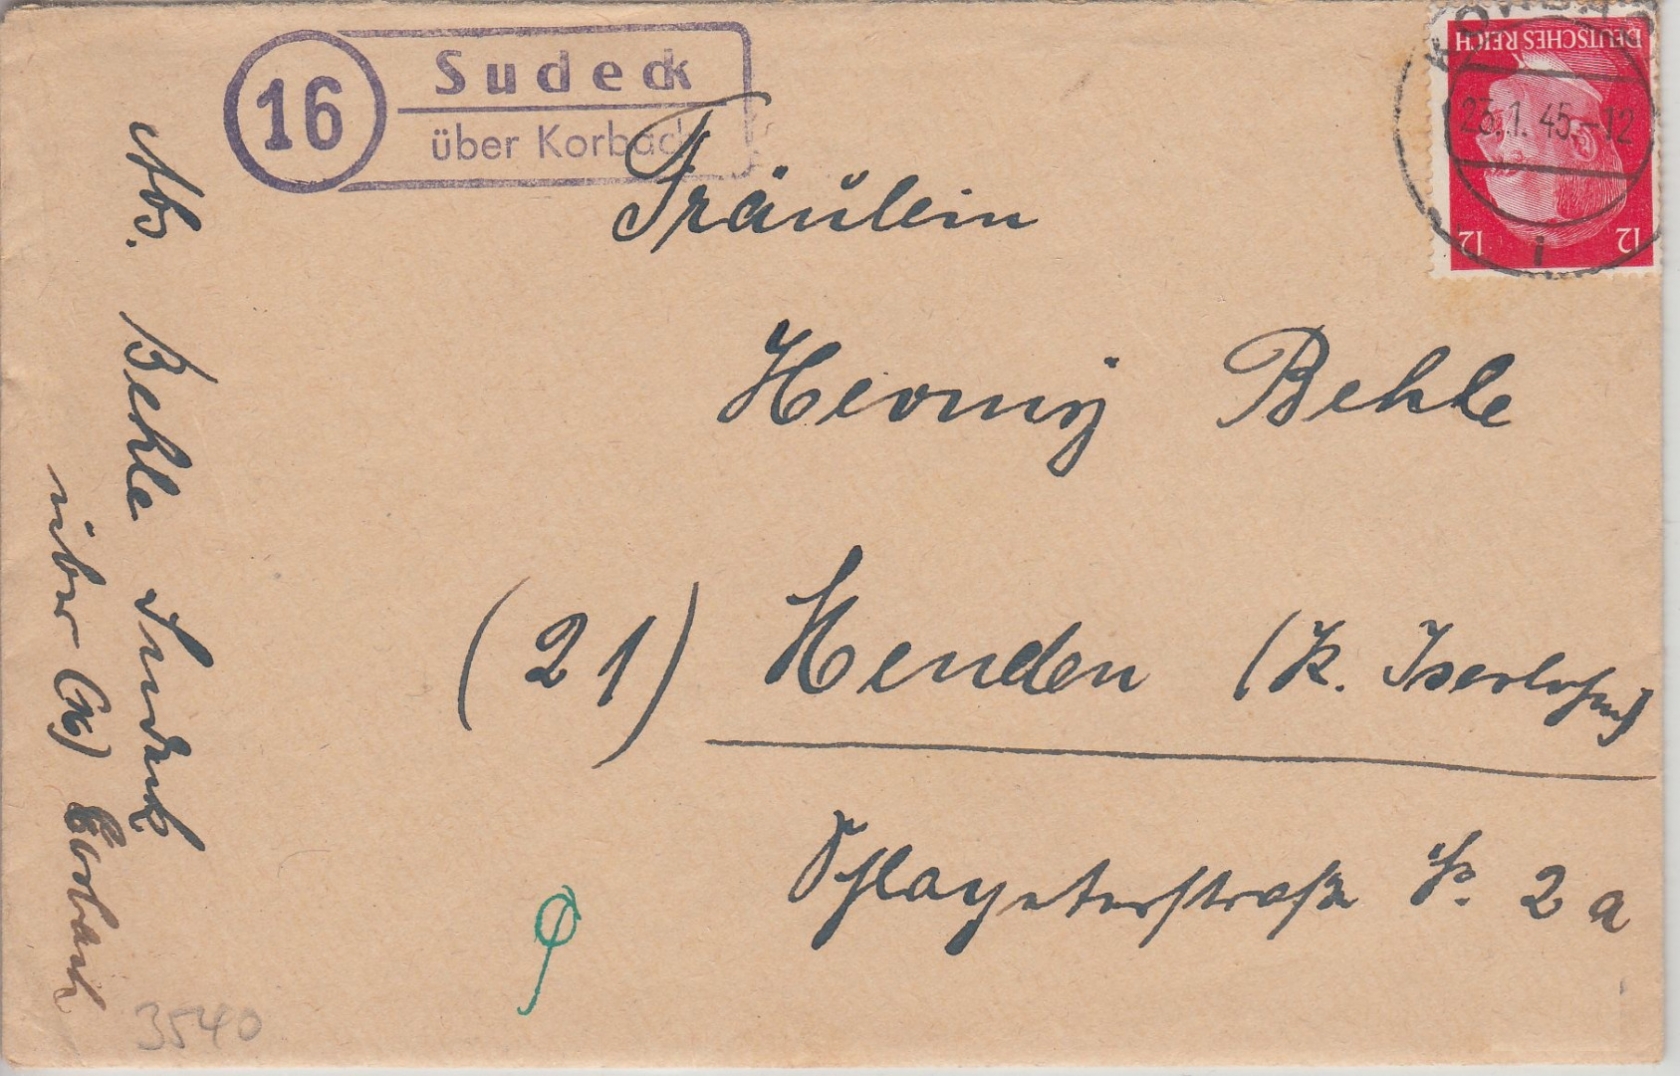 16
Sudeck
über Korbach
DEUTSCHES REICH
12 12
23.1.45.-12
i
Fräulein
Henny Behle
(21) Menden (K. Iserlohn)
2 a
Abs. Behle Sudeck
über (16) Corbach
3540